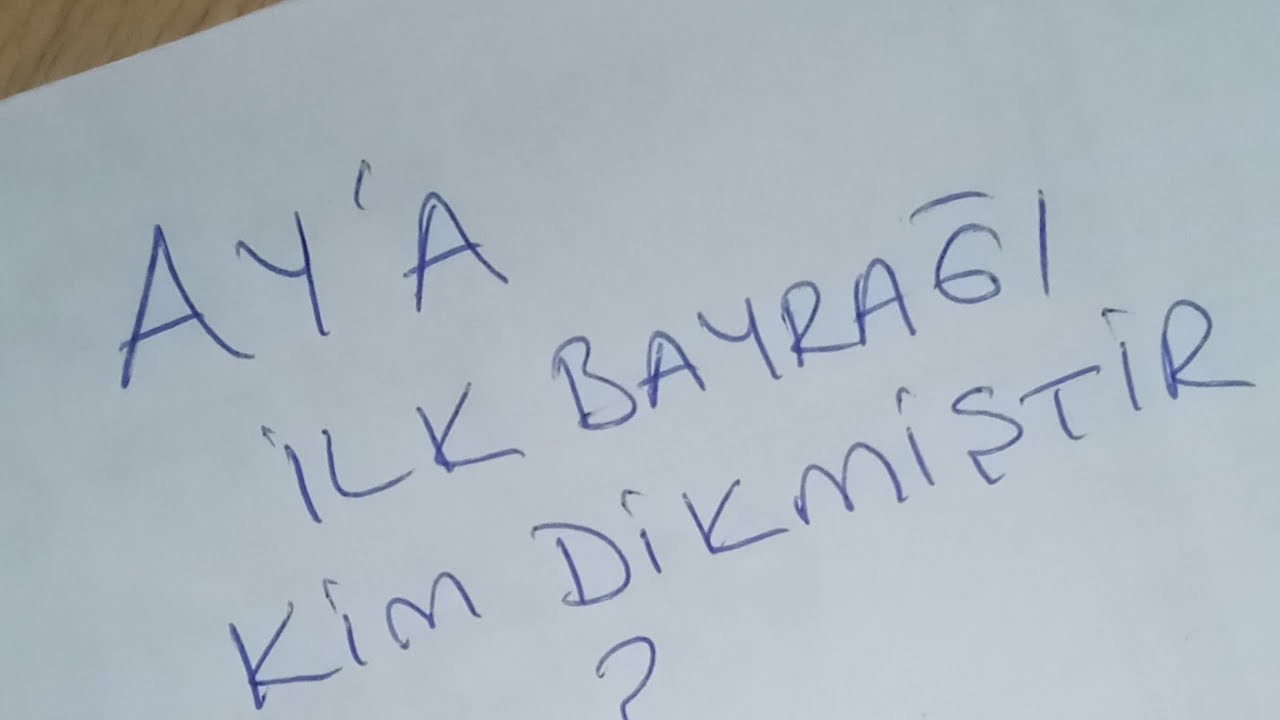 AY'A
İLK BAYRAĞI
KİM DİKMİŞTİR
?